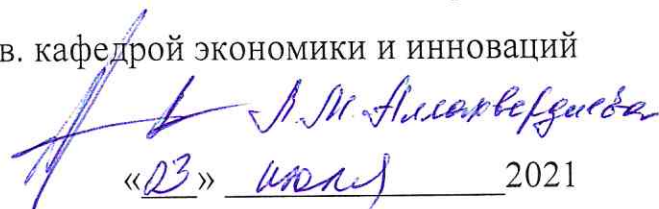 в. кафедрой экономики и инноваций
Л.М. Аллахвердиева
«03» июля 2021